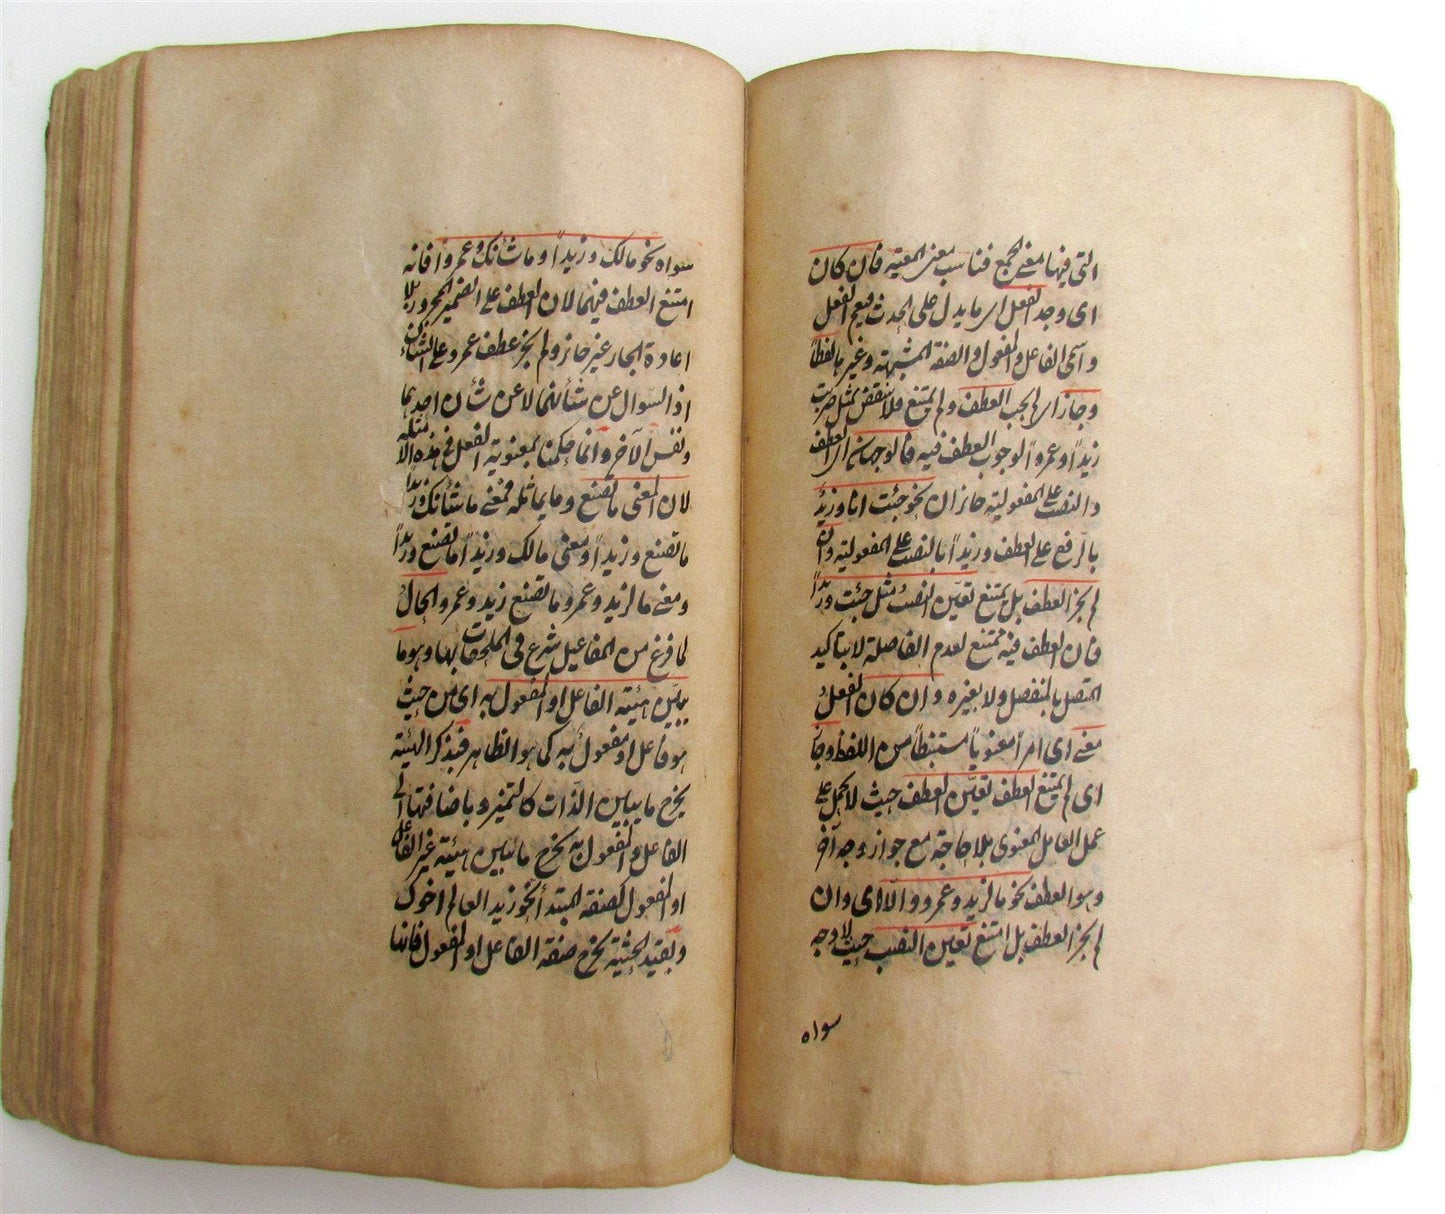 التی فیها معنی الجمع فناسب معنی المعیة فان کان
ای وجد الفعل ای ما یدل علی الحدث فیعم الفعل
واسمی الفاعل والمفعول والصفة المشبهة وغیرها لفظاً
وجاز ای لم یجب العطف ولم یمتنع فلا ینقض بمثل ضربت
زیداً وعمرواً لوجوب العطف فیه فالوجهان ای العطف
والنصب علی المفعولیة جائزان نحو جئت انا وزیدٌ
بالرفع علی العطف وزیداً بالنصب علی المفعولیة وان
لم یجز العطف بل یمتنع تعیّن النصبُ مثل جئت وزیداً
فان العطف فیه ممتنع لعدم الفاصلة لا بتاکید
المتصل بالمنفصل ولا بغیره وان کان الفعلُ
معنی ای امراً معنویاً مستنبطاً من اللفظ وجاز
ای لم یمتنع العطف تعیّن العطف حیث لا یحمل علی
عمل العامل المعنوی بلا حاجة مع جواز وجه آخر
وهو العطف نحو ما لزید وعمرو والّا ای وان
لم یجز العطف بل امتنع تعین النصب حیث لا وجه
سواه
سواه نحو مالک وزیداً وما شأنک وعمرواً فانه
امتنع العطف فیهما لان العطف علی الضمیر المجرور بلا
اعادة الجار غیر جائز ولم یجز عطف عمرو علی الشأن
اذ السّوال عن شأنهما لا عن شأن احدهما
ونفس الآخر وانما حکمنا بمعنویة الفعل فی هذه الامثلة
لان المعنی ما تصنع وما یماثله فمعنی ما شأنک وزیداً
ما تصنع وزیداً ومعنی مالک وزیداً ما تصنع وزیداً
ومعنی ما لزید وعمرو ما یصنع زید وعمرو الحالُ
لما فرغ من المفاعیل شرع فی الملحقات بها وهو ما
یبیّن هیئة الفاعل او المفعول به ای من حیث
هو فاعل او مفعول به کما هو الظاهر فبذکر الهیئة
یخرج ما یبین الذّات کالتمیز وباضافتها الی
الفاعل والمفعول به یخرج ما یبین هیئة غیر الفاعل
او المفعول کصفة المبتدأ نحو زید العالم اخوک
وبقید الحیثیة یخرج صفة الفاعل او المفعول فانها